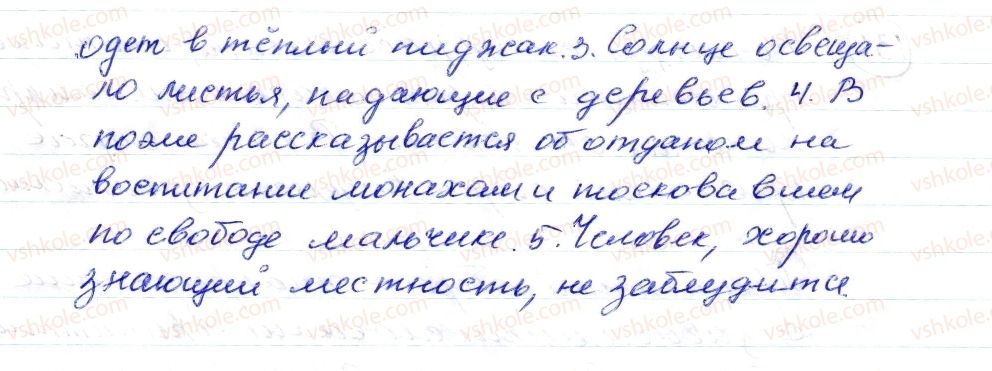 одет в тёплый пиджак. 3. Солнце освеща-
ло листья, падающие с деревьев. 4. В
поэме рассказывается об отданом на
воспитание монахам и тосковавшем
по свободе мальчике. 5. Человек, хорошо
знающий местность, не заблудится.